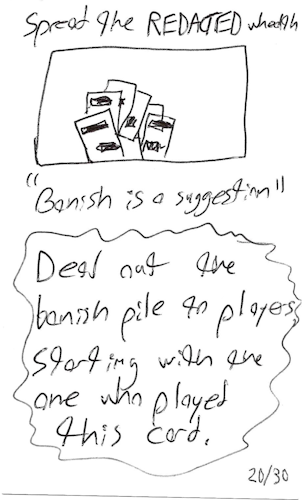 Spread the REDACTED whealth
"Banish is a suggestion"
Deal out the
banish pile to players,
starting with the
one who played
this card.
20/30